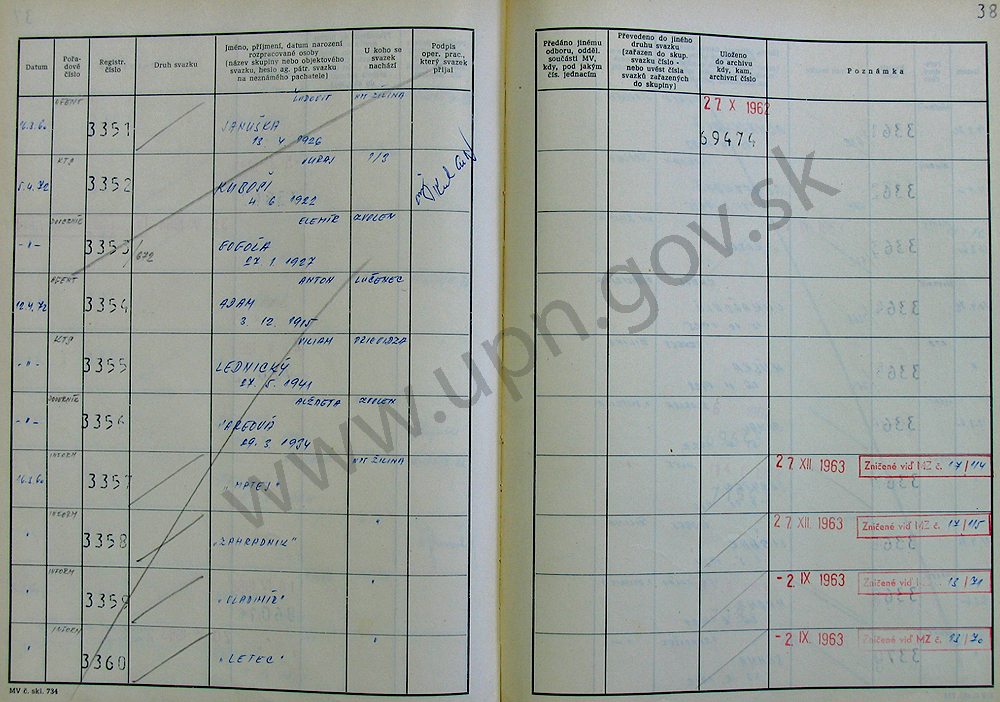 38
Datum
Pořa-
dové
číslo
Registr.
číslo
Druh svazku
jméno, příjmení, datum narození
rozpracované osoby
(název skupiny nebo objektového
svazku, heslo ag. pátr. svazku
na neznámého pachatele)
U koho se
svazek
nachází
Podpis
oper. prac.,
který svazek
přijal
Předáno jinému
odboru, odděl.
součásti MV,
kdy, pod jakým
čís. jednacím
Převedeno do jiného
druhu svazku
(zařazen do skup.
svazku číslo -
nebo uvést čísla
svazků zařazených
do skupiny)
Uloženo
do archivu
kdy, kam,
archivní číslo
Poznámka
AGENT
ĽUDOVÍT
NM ŽILINA
16.3.60
3351
JANUŠKA
13 4 1926
27 X 1962
69474
KTS
JURAJ
1/3
5.4.72
3352
4. 6. 1922
DOVERNÍK
ELEMÍR
ZVOLEN
-"-
3353/672
GOGOĽA
27. 1. 1927
AGENT
ANTON
LUČENEC
12.4.72
3354
ADAM
3. 12. 1915
KTS
VILIAM
PRIEVIDZA
-"-
3355
LEDNICKÝ
27. 5. 1941
DOVERNÍK
ALŽBETA
ZVOLEN
-"-
3356
29. 3. 1934
INFORM
NM ŽILINA
16.3.60
3357
"MATEJ"
27. XII. 1963
Zničené viď MZ č. 17/114
INFORM
"
"
3358
"ZAHRADNIK"
27. XII. 1963
Zničené viď MZ č. 17/115
INFORM
"
3359
"VLADIMÍR"
- 2. IX 1963
Zničené viď MZ č. 13/71
INFORM
"
"
3360
"LETEC"
- 2. IX. 1963
Zničené viď MZ č. 13/70
MV č. skl. 734
www.upn.gov.sk